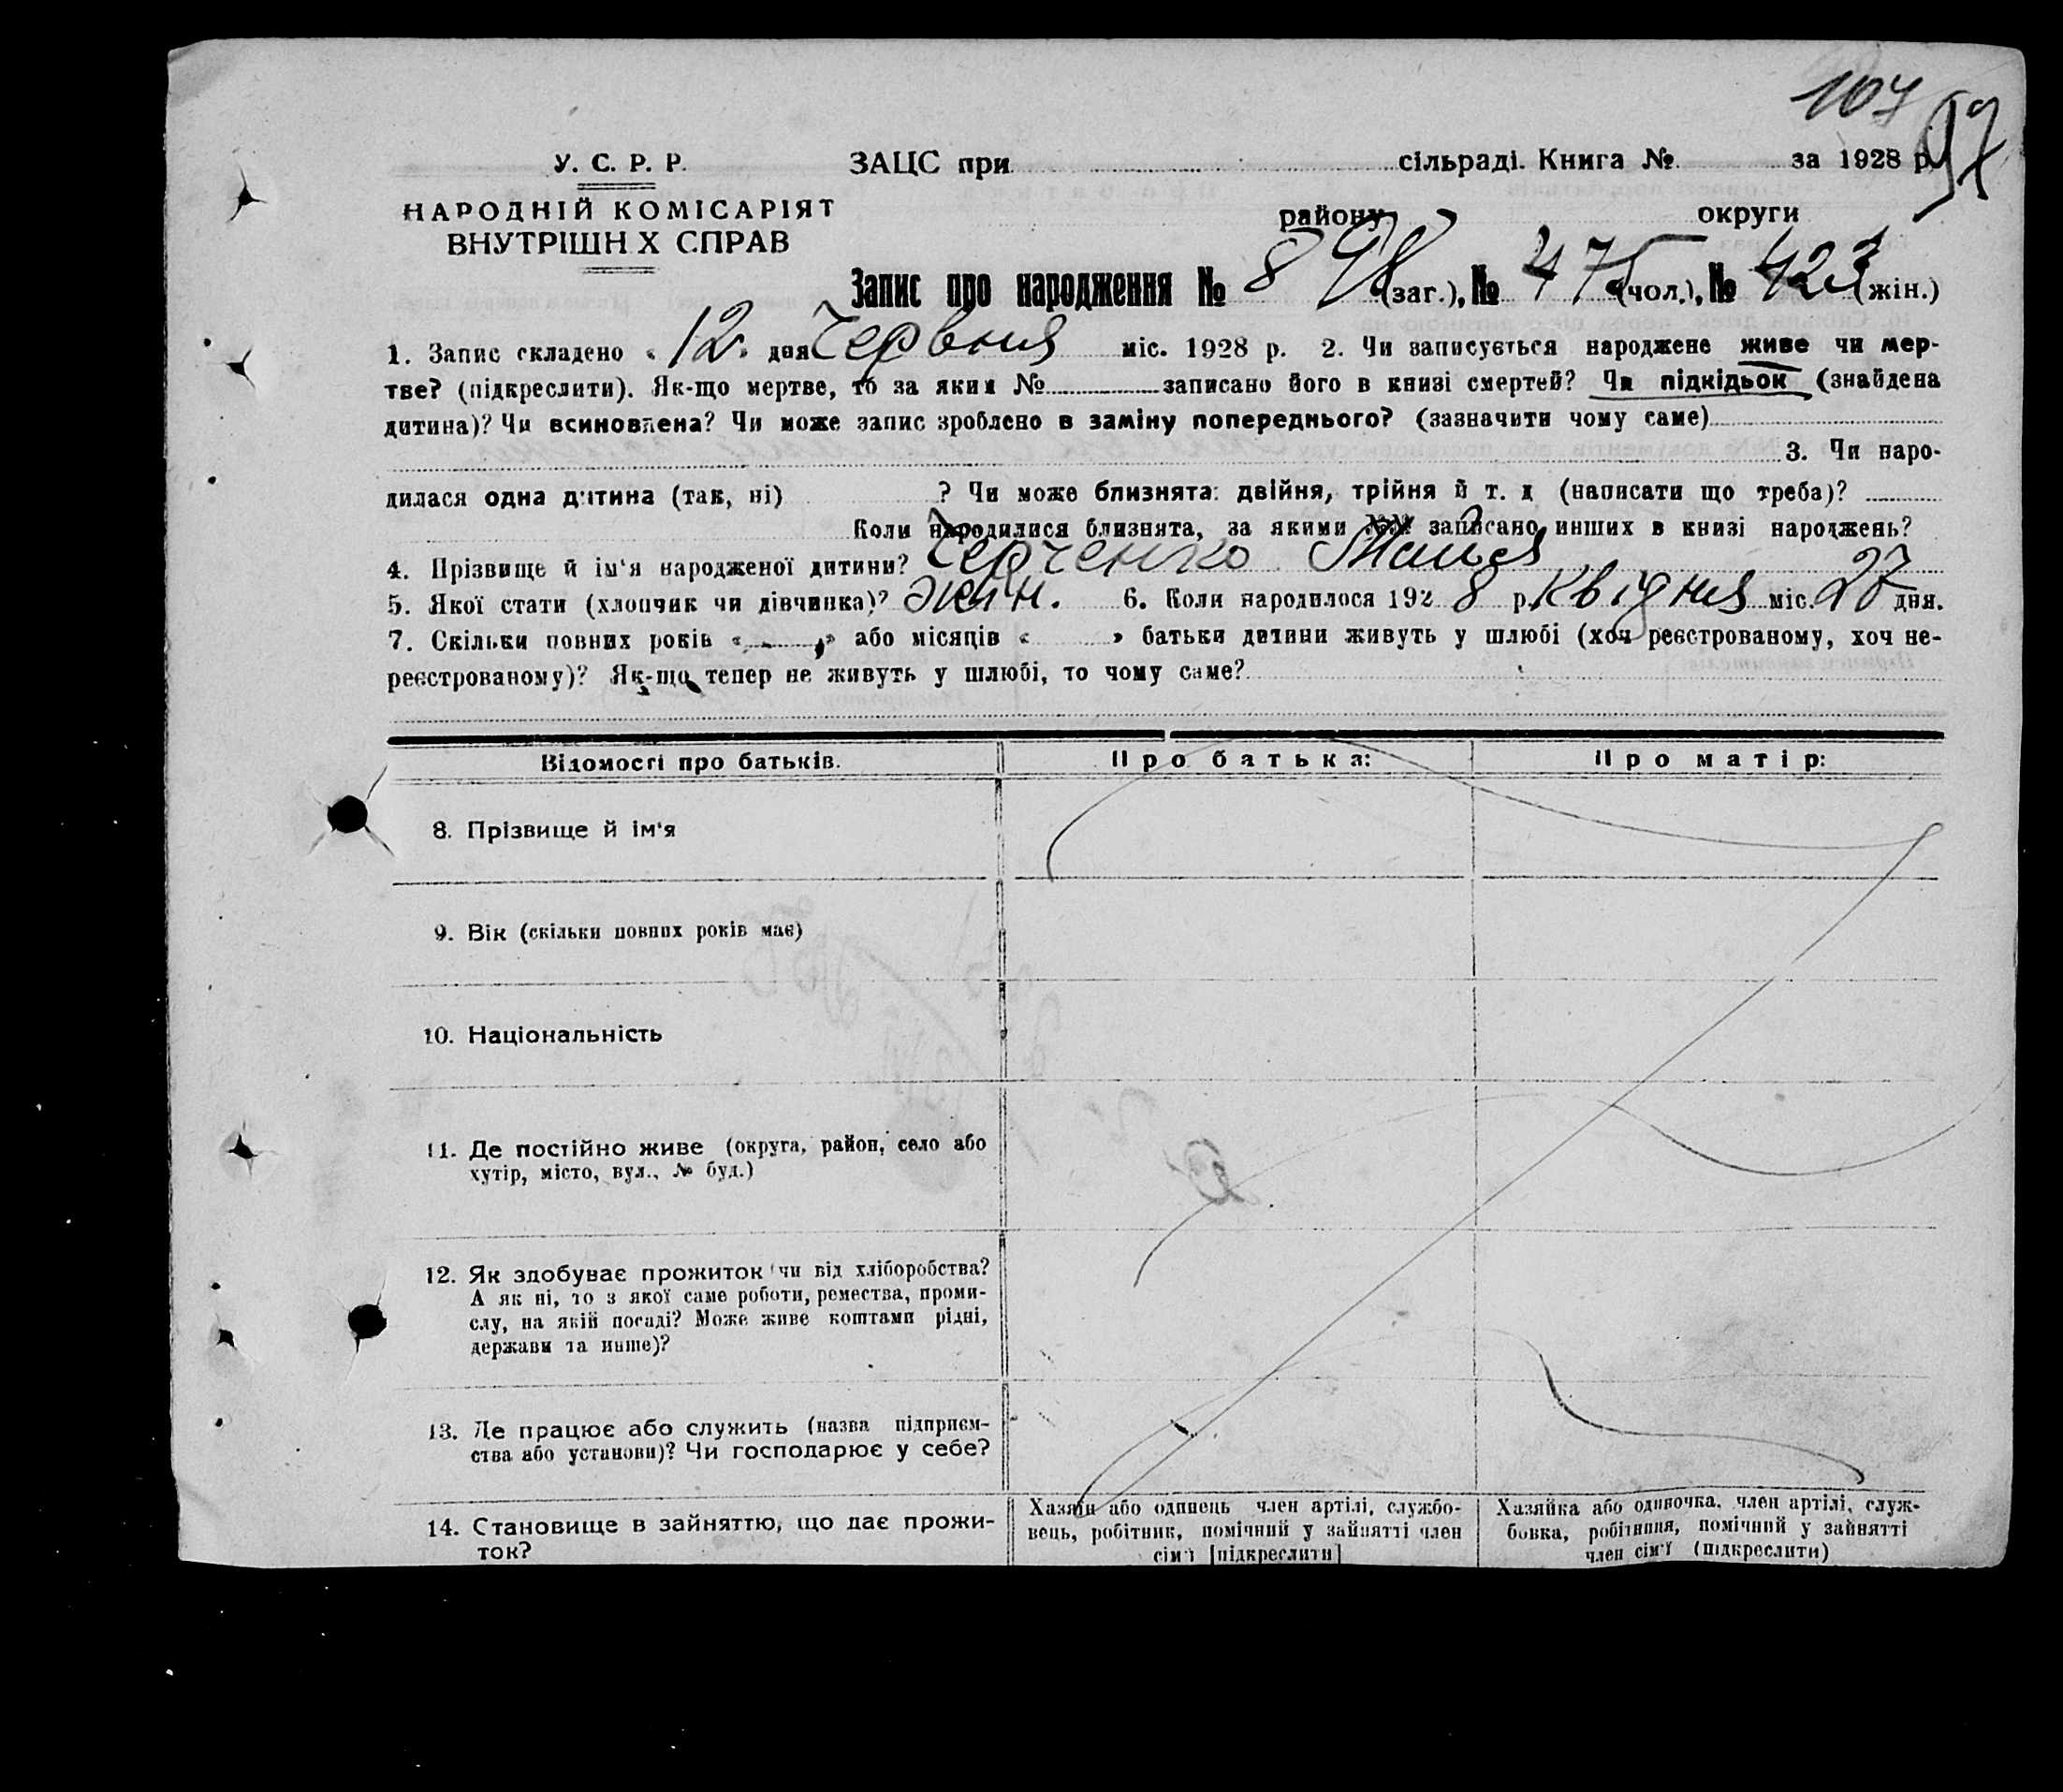 107
97
У. С. Р. Р.
ЗАЦС при сільраді. Книга № за 1928 р.
НАРОДНІЙ КОМІСАРІЯТ
району округи
ВНУТРІШН Х СПРАВ
Запис про народження № 898 (заг.), № 475 (чол.), № 423 (жін.)
1. Запис складено « 12 » дня Червня міс. 1928 р. 2. Чи записується народжене живе чи мер-
тве? (підкреслити). Як-що мертве, то за яким № записано його в книзі смертей? Чи підкідьок (знайдена
дитина)? Чи всиновлена? Чи може запис зроблено в заміну попереднього? (зазначити чому саме)
3. Чи наро-
дилася одна дитина (так, ні) ? Чи може близнята: двійня, трійня й т. д (написати що треба)?
Коли народилися близнята, за якими №№ записано инших в книзі народжень?
4. Прізвище й ім'я народженої дитини? Черченко
5. Якої стати (хлопчик чи дівчинка)? жін. 6. Коли народилося 192 8 р. Квідния міс. 27 дня.
7. Скільки повних років « » або місяців « » батьки дитини живуть у шлюбі (хоч реєстрованому, хоч не-
реєстрованому)? Як-що тепер не живуть у шлюбі, то чому саме?
Відомості про батьків. Про батька: Про матір:
8. Прізвище й ім'я
9. Вік (скільки повних років має)
10. Національність
11. Де постійно живе (округа, район, село або
хутір, місто, вул., № буд.)
12. Як здобуває прожиток чи від хліборобства?
А як ні, то з якої саме роботи, ремества, проми-
слу, на якій посаді? Може живе коштами рідні,
держави та инше)?
13. Де працює або служить (назва підприєм-
ства або установи)? Чи господарює у себе?
14. Становище в зайняттю, що дає прожи-
ток?
Хазяїн або одинець член артілі, службо-
вець, робітник, помічний у зайнятті член
сім'ї [підкреслити]
Хазяйка або одиночка, член артілі, служ-
бовка, робітниця, помічний у зайнятті
член сім'ї (підкреслити)